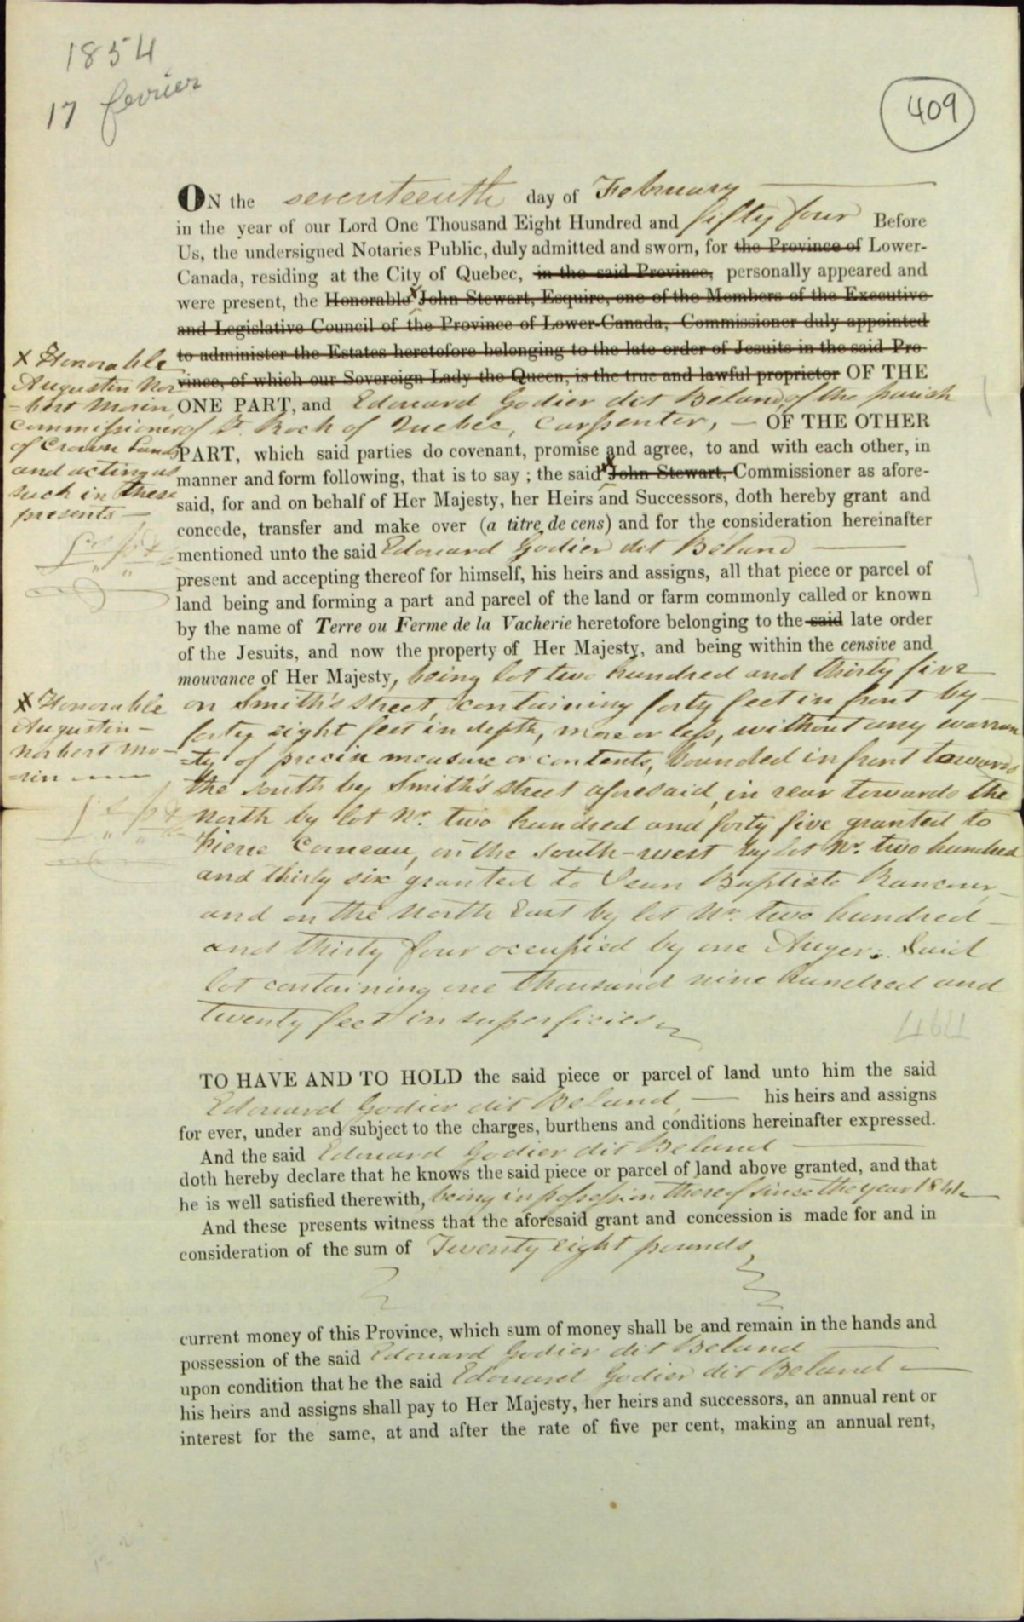 1854
17 fevrier
409
ON the seventeenth day of February
in the year of our Lord One Thousand Eight Hundred and fifty four Before
Us, the undersigned Notaries Public, duly admitted and sworn, for the Province of Lower-
Canada, residing at the City of Quebec, in the said Province, personally appeared and
were present, the Honorable John Stewart, Esquire, one of the Members of the Executive
and Legislative Council of the Province of Lower-Canada, Commissioner duly appointed
to administer the Estates heretofore belonging to the late order of Jesuits in the said Pro-
vince, of which our Sovereign Lady the Queen, is the true and lawful proprietor OF THE
X Honorable
Augustin Nor
-bert Morin,
Commissioner
of Crown Lands
and acting as
such in these
presents —
ONE PART, and Edouard Godier dit Beland, of the parish
of St. Roch of Quebec, Carpenter, — OF THE OTHER
PART, which said parties do covenant, promise and agree, to and with each other, in
manner and form following, that is to say ; the said X John Stewart, Commissioner as afore-
said, for and on behalf of Her Majesty, her Heirs and Successors, doth hereby grant and
concede, transfer and make over (a titre de cens) and for the consideration hereinafter
mentioned unto the said Edouard Godier dit Beland
present and accepting thereof for himself, his heirs and assigns, all that piece or parcel of
land being and forming a part and parcel of the land or farm commonly called or known
by the name of Terre ou Ferme de la Vacherie heretofore belonging to the said late order
of the Jesuits, and now the property of Her Majesty, and being within the censive and
mouvance of Her Majesty, being lot two hundred and thirty five
X Honorable
Augustin -
Norbert Mo-
-rin
on Smith's Street, containing forty feet in front by
forty eight feet in depth, more or less, without any warran
-ty of precise measure or contents, bounded in front towards
the South by Smith's Street aforesaid, in rear towards the
North by lot No. two hundred and forty five granted to
Pierre Comeau, on the South-west by lot No. two hundred
and thirty six granted to Jean Baptiste Rancour,
and on the North East by lot No. two hundred
and thirty four occupied by one Auger. Said
lot containing one thousand nine hundred and
twenty feet in superficies
TO HAVE AND TO HOLD the said piece or parcel of land unto him the said
Edouard Godier dit Beland, — his heirs and assigns
for ever, under and subject to the charges, burthens and conditions hereinafter expressed.
And the said Edouard Godier dit Beland
doth hereby declare that he knows the said piece or parcel of land above granted, and that
he is well satisfied therewith, being in possession thereof since the year
And these presents witness that the aforesaid grant and concession is made for and in
consideration of the sum of Twenty eight pounds
current money of this Province, which sum of money shall be and remain in the hands and
possession of the said Edouard Godier dit Beland
upon condition that he the said Edouard Godier dit Beland —
his heirs and assigns shall pay to Her Majesty, her heirs and successors, an annual rent or
interest for the same, at and after the rate of five per cent, making an annual rent,